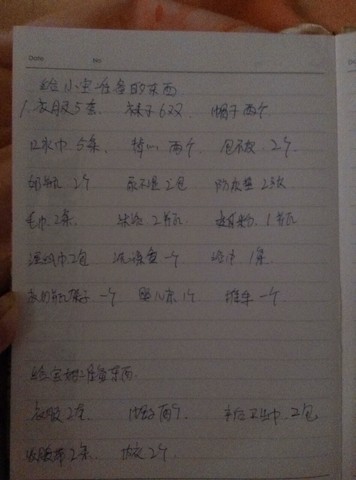 Date No
给小宝准备的东西
1.衣服5套 袜子6双 帽子两个
口水巾5条 两个 包衣 2个
奶瓶2个 尿不湿2包 防尿垫
毛巾2条 1瓶
湿纸巾2包 洗澡盆一个 浴巾1条
架子一个 婴儿床1个 推车一个
给宝妈准备东西
衣服2套 帽子两个 产后卫生巾2包
2条 2个